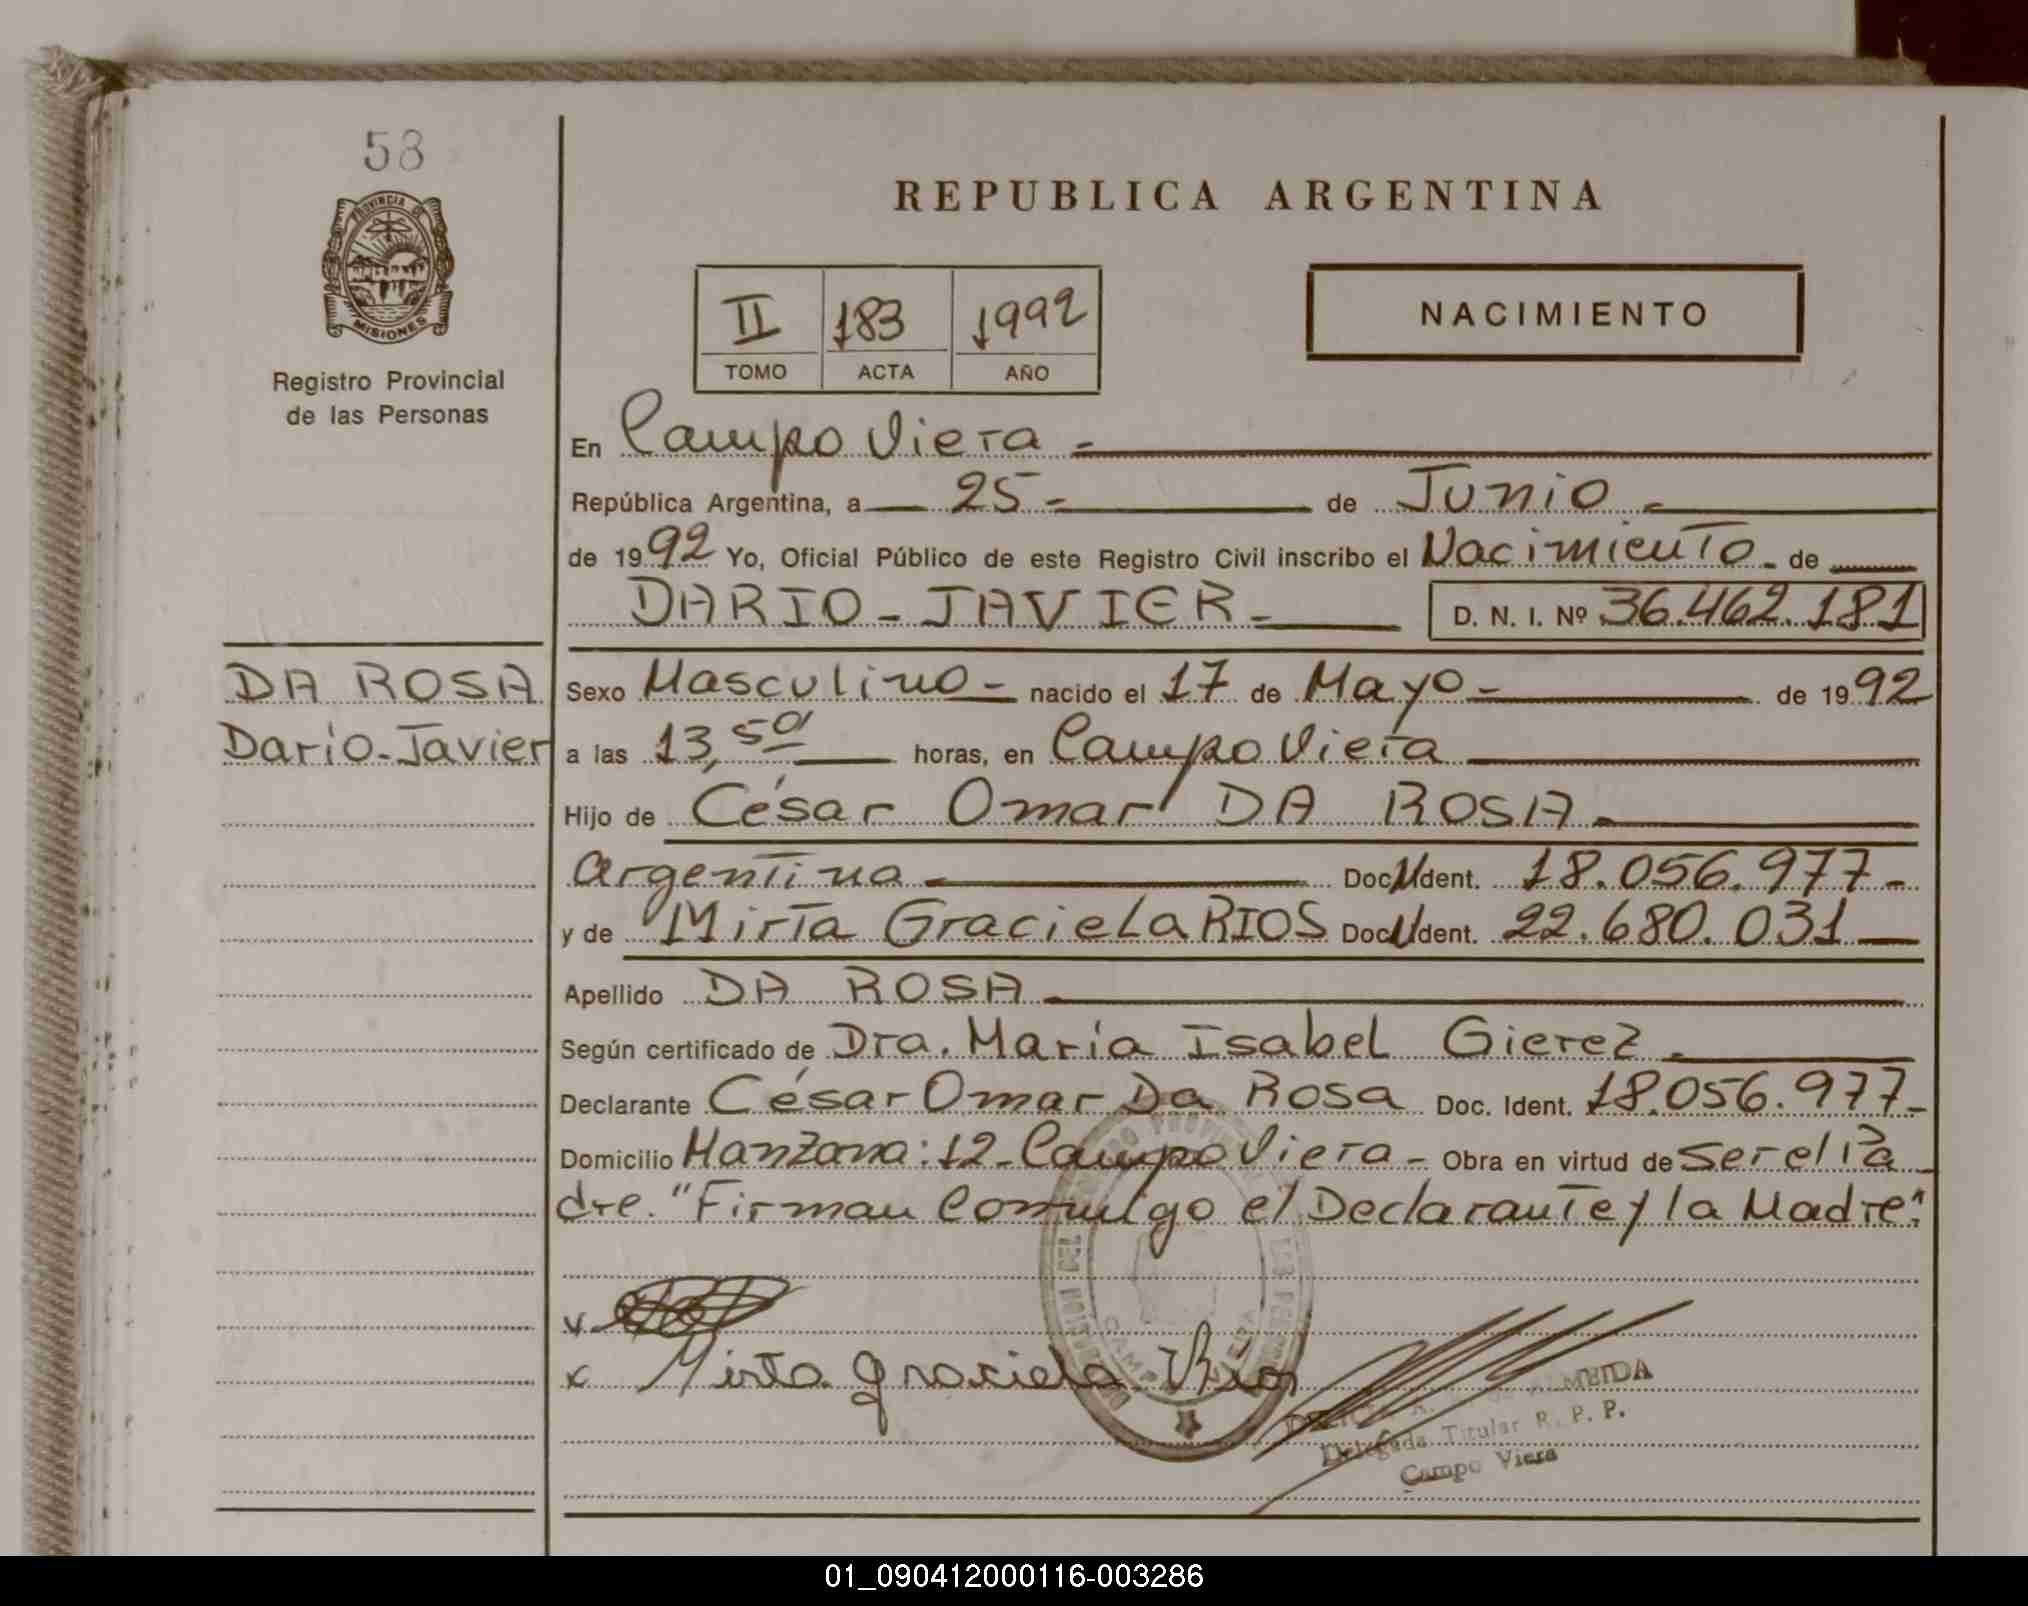 58
PROVINCIA DE
MISIONES
Registro Provincial
de las Personas
REPUBLICA ARGENTINA
II 183 1992
TOMO ACTA AÑO
NACIMIENTO
En Campo Viera -
República Argentina, a 25- de Junio -
de 1992 Yo, Oficial Público de este Registro Civil inscribo el Nacimiento - de
DARIO - JAVIER - D. N. I. Nº 36.462.181
DA ROSA
Darío - Javier
Sexo Masculino - nacido el 17 de Mayo - de 1992
a las 13,50 horas, en Campo Viera
Hijo de César Omar DA ROSA -
Argentina - Doc. Ident. 18.056.977 -
y de Mirta Graciela RIOS Doc. Ident. 22.680.031
Apellido DA ROSA
Según certificado de Dra. María Isabel Gierez -
Declarante César Omar Da Rosa Doc. Ident. 18.056.977 -
Domicilio Manzana: 12 - Campo Viera - Obra en virtud de Ser el Pa
dre. "Firman Conmigo el Declarante y la Madre".
x
x Mirta Graciela Rios
ALMEIDA
Delegada Titular R. P. P.
Campo Viera
01_090412000116-003286